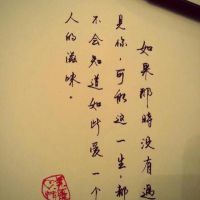 如果那時没有遇
見你，可能这一生，都
不会知道如此爱一个
人的滋味。